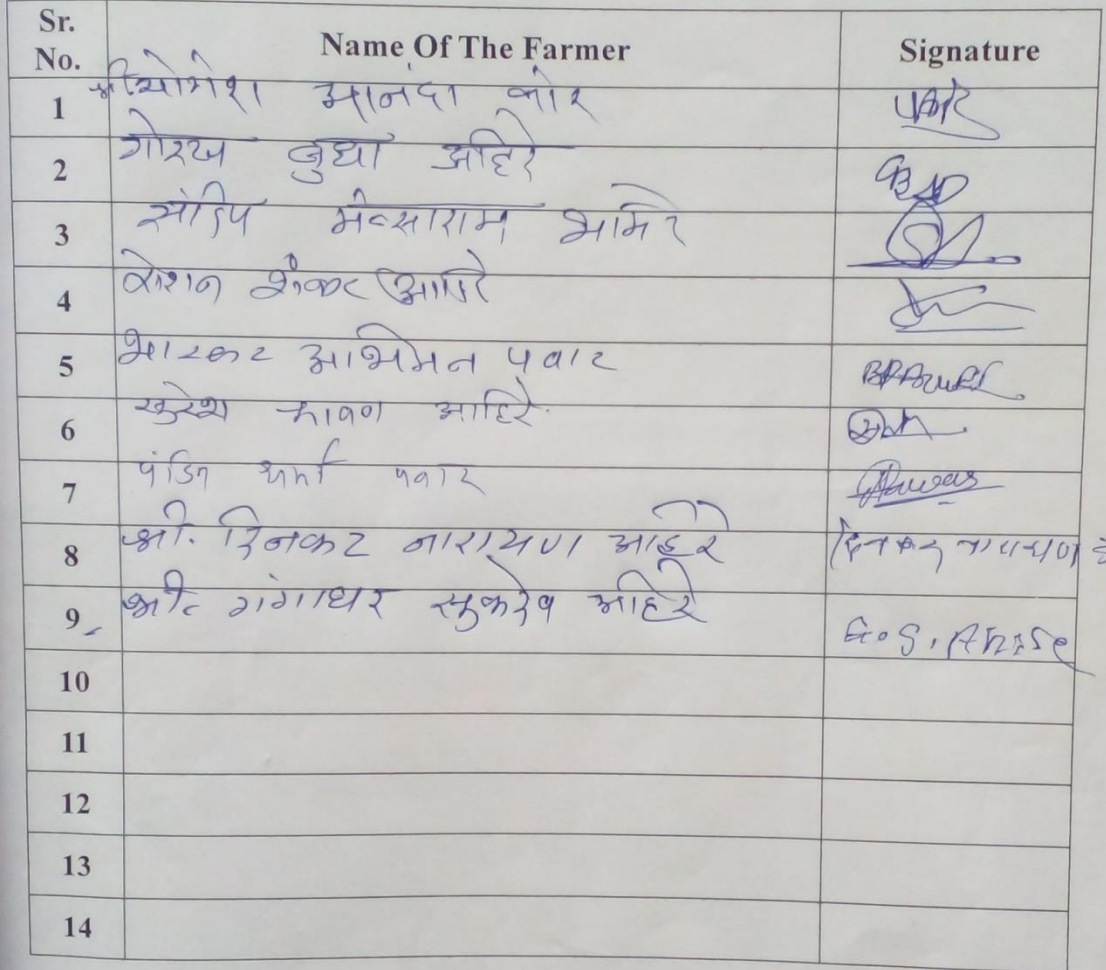 Sr. No. Name Of The Farmer Signature
1 श्री योगेश आनंदा मोरे
2 गोरख बुधा अहिरे
3 संदिप भामरे
4 रोशन शंकर आहिरे
5 भास्कर अभिमन पवार
6 सुरेश आहिरे
7 पंडित धर्मा पवार
8 श्री. दिनकर नारायण आहिरे दिनकर नारायण
9 श्री. गंगाधर सुकदेव अहिरे G.S. Ahire
10
11
12
13
14